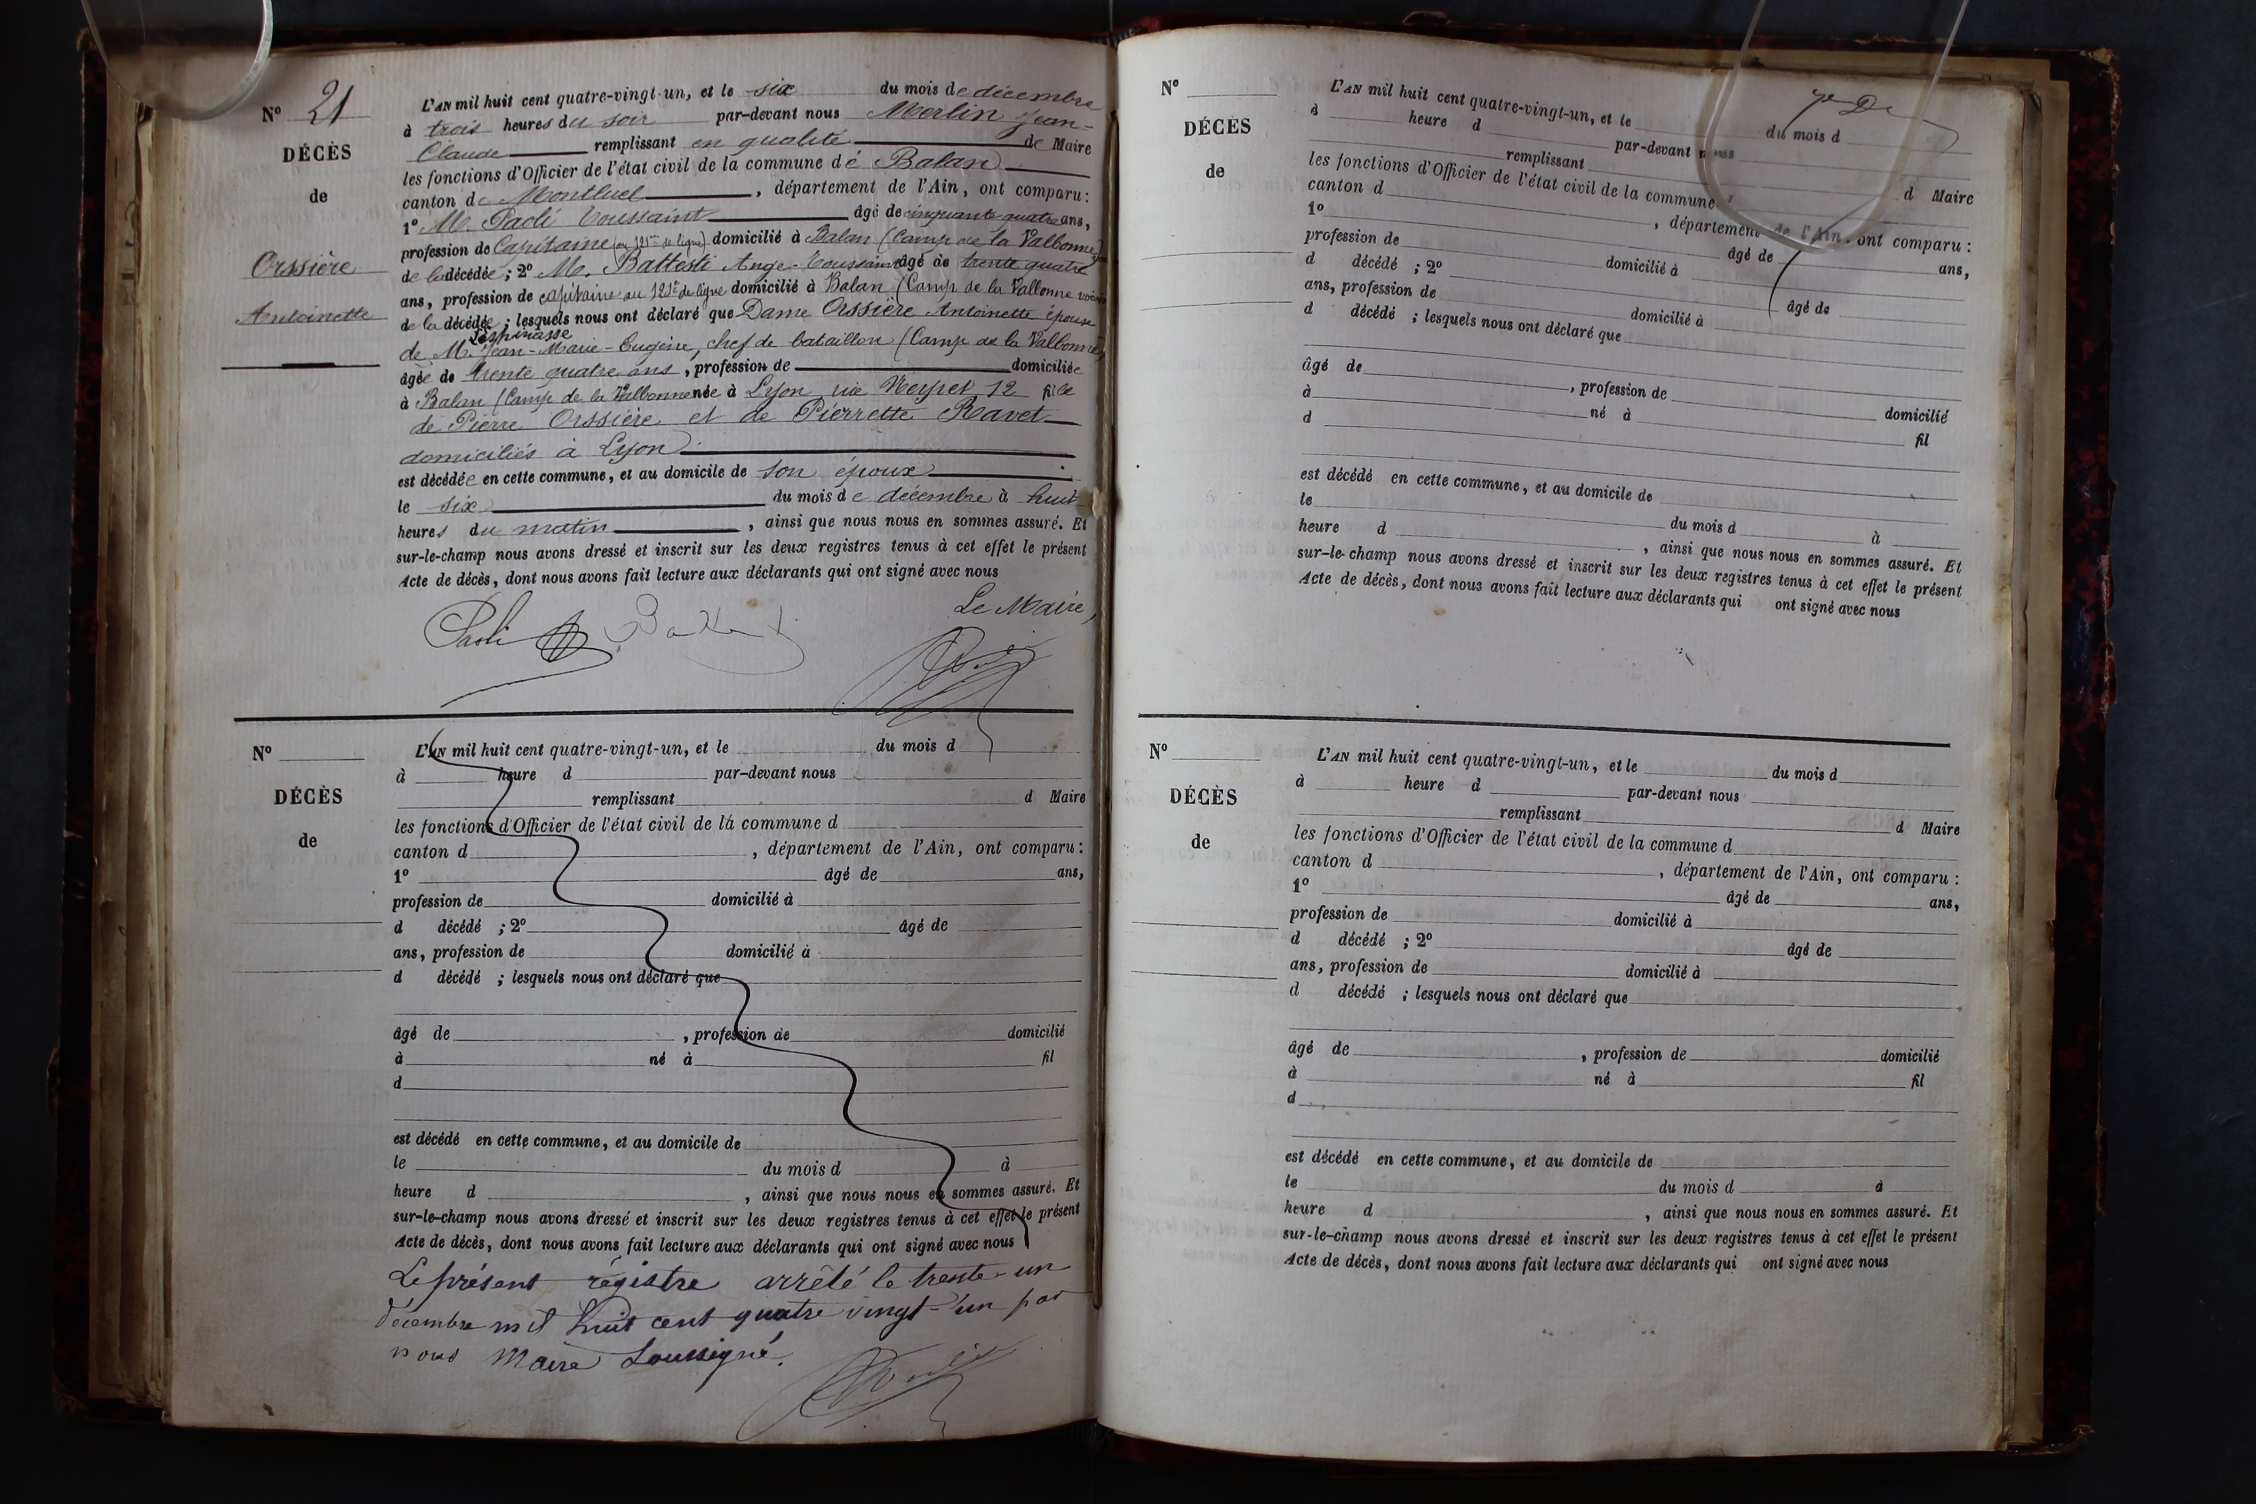 Nº 21
DÉCÈS
de
Orssière
Antoinette
L'AN mil huit cent quatre-vingt-un, et le six du mois de décembre
à trois heures du soir par-devant nous Merlin Jean-
Claude remplissant en qualité de Maire
les fonctions d'Officier de l'état civil de la commune de Balan
canton de Montluel, département de l'Ain, ont comparu :
1º M. Paoli Toussaint âgé de cinquante-quatre ans,
profession de Capitaine (au 121me de ligne) domicilié à Balan (Camp de la Valbonne)
de la décédée ; 2º M. Battesti Ange-Toussaint âgé de trente quatre
ans, profession de capitaine au 121e de ligne domicilié à Balan (Camp de la Valbonne voisin
de la décédée ; lesquels nous ont déclaré que Dame Orssière Antoinette épouse
Lespinasse
de M. Jean-Marie-Eugène, chef de bataillon (Camp de la Valbonne)
âgée de trente quatre ans, profession de domiciliée
à Balan (Camp de la Valbonne née à Lyon rue Neyret 12 fille
de Pierre Orssière et de Pierrette Ravet
domiciliés à Lyon
est décédée en cette commune, et au domicile de son époux
le six du mois de décembre à huit
heures du matin, ainsi que nous nous en sommes assuré. Et
sur-le-champ nous avons dressé et inscrit sur les deux registres tenus à cet effet le présent
Acte de décès, dont nous avons fait lecture aux déclarants qui ont signé avec nous
Le Maire,
Paoli Battesti
Nº
DÉCÈS
de
L'AN mil huit cent quatre-vingt-un, et le du mois d
à heure d par-devant nous
remplissant d Maire
les fonctions d'Officier de l'état civil de la commune d
canton d , département de l'Ain, ont comparu :
1º âgé de ans,
profession de domicilié à
d décédé ; 2º âgé de
ans, profession de domicilié à
d décédé ; lesquels nous ont déclaré que
âgé de , profession de domicilié
à né à fil
d
est décédé en cette commune, et au domicile de
le du mois d à
heure d , ainsi que nous nous en sommes assuré. Et
sur-le-champ nous avons dressé et inscrit sur les deux registres tenus à cet effet le présent
Acte de décès, dont nous avons fait lecture aux déclarants qui ont signé avec nous
Le présent régistre arrêté le trente-un
décembre mil huit cent quatre vingt-un par
nous Maire Soussigné.
Nº
DÉCÈS
de
L'AN mil huit cent quatre-vingt-un, et le du mois d
à heure d par-devant nous
remplissant d Maire
les fonctions d'Officier de l'état civil de la commune
canton d , département de l'Ain, ont comparu :
1º âgé de ans,
profession de domicilié à
d décédé ; 2º âgé de
ans, profession de domicilié à
d décédé ; lesquels nous ont déclaré que
âgé de , profession de domicilié
à né à fil
d
est décédé en cette commune, et au domicile de
le du mois d à
heure d , ainsi que nous nous en sommes assuré. Et
sur-le-champ nous avons dressé et inscrit sur les deux registres tenus à cet effet le présent
Acte de décès, dont nous avons fait lecture aux déclarants qui ont signé avec nous
Nº
DÉCÈS
de
L'AN mil huit cent quatre-vingt-un, et le du mois d
à heure d par-devant nous
remplissant d Maire
les fonctions d'Officier de l'état civil de la commune d
canton d , département de l'Ain, ont comparu :
1º âgé de ans,
profession de domicilié à
d décédé ; 2º âgé de
ans, profession de domicilié à
d décédé ; lesquels nous ont déclaré que
âgé de , profession de domicilié
à né à fil
d
est décédé en cette commune, et au domicile de
le du mois d à
heure d , ainsi que nous nous en sommes assuré. Et
sur-le-champ nous avons dressé et inscrit sur les deux registres tenus à cet effet le présent
Acte de décès, dont nous avons fait lecture aux déclarants qui ont signé avec nous